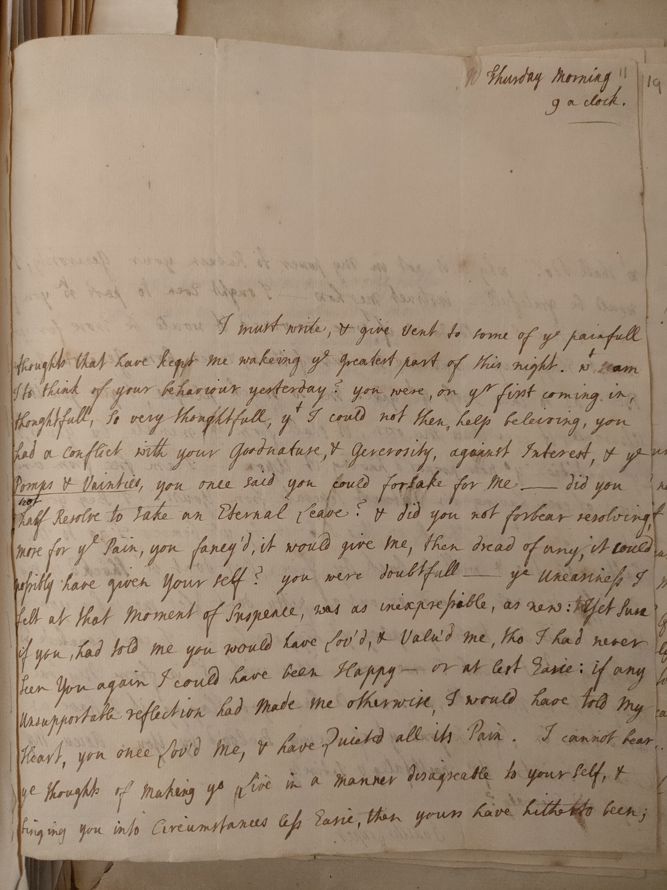 Thursday Morning 11
9 a clock.
19
I must write, & give vent to some of ye painfull
thoughts that have kept me wakeing ye greatest part of this night. wt am
I to think of your behaviour yesterday? you were, on yr first coming in,
thoughtfull, So very thoughtfull, yt I could not then, help beleiving, you
had a conflict with your Goodnature, & Generosity, against Interest, & ye
Pomps & Vainties, you once said you could forsake for Me — did you
not
half Resolve to take an Eternal Leave? & did you not forbear resolving
more for ye Pain, you fancy'd, it would give Me, then dread of any, it could
possibly have given Your self? you were doubtfull — ye Uneasiness I
felt at that Moment of Suspence, was as inexpressable, as new: Yet Sure
if you, had told me you would have Lov'd, & Valu'd me, tho I had never
Seen You again I could have been Happy — or at lest Easie: if any
Unsupportable reflection had made me otherwise, I would have told My
Heart, you once Lov'd Me, & have Quieted all its Pain. I cannot bear
ye thoughts of making yo Live in a manner disagreable to your Self, &
bringing you into Circumstances less Easie, then yours have hitherto been;